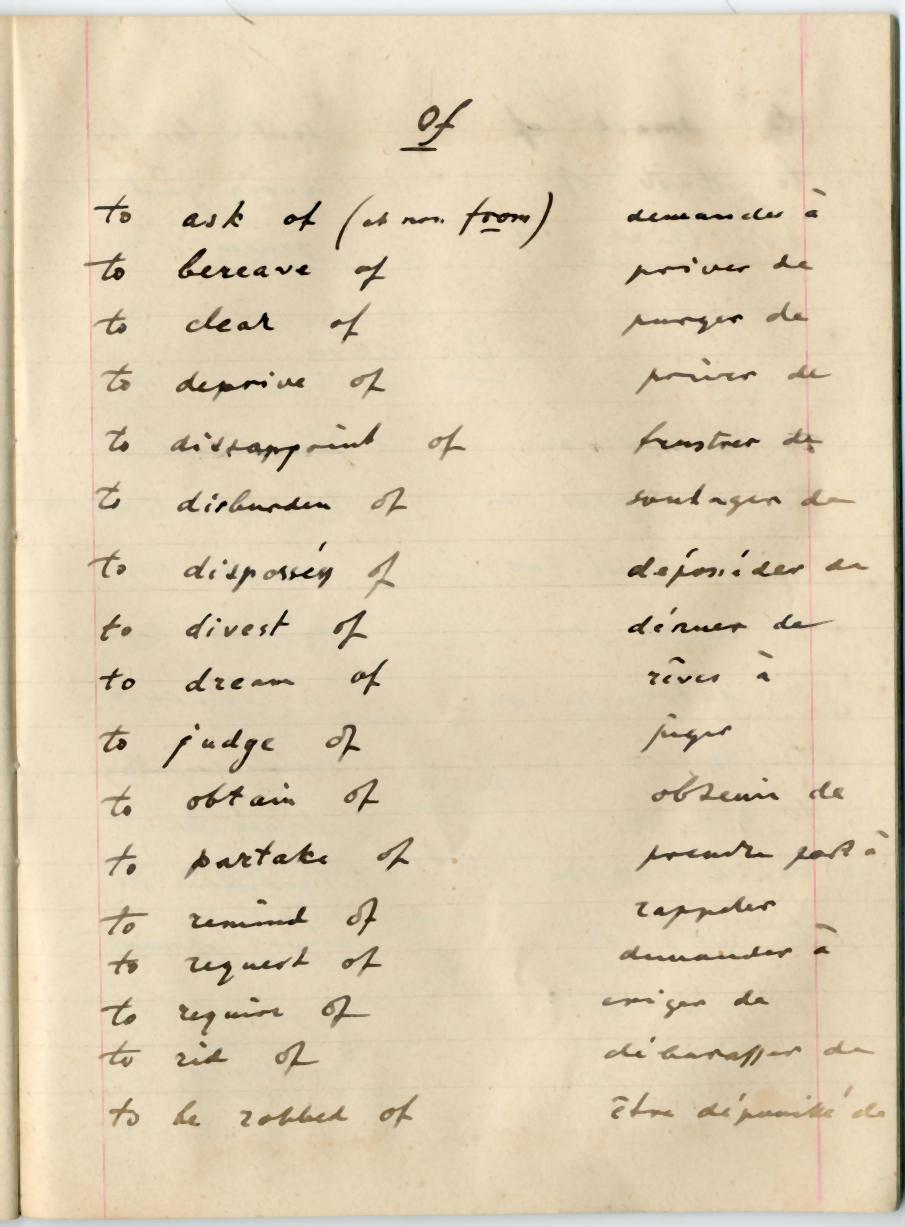 Of
to ask of (et non from) demander à
to bereave of priver de
to clear of purger de
to deprive of priver de
to dissappoint of frustrer de
to disburden of soulager de
to disposséss of déposséder de
to divest of dénuer de
to dream of rêver à
to judge of juger
to obtain of obtenir de
to partake of prendre part à
to remind of rappeler
to request of demander à
to require of exiger de
to rid of débarasser de
to be robbed of être dépouillé de